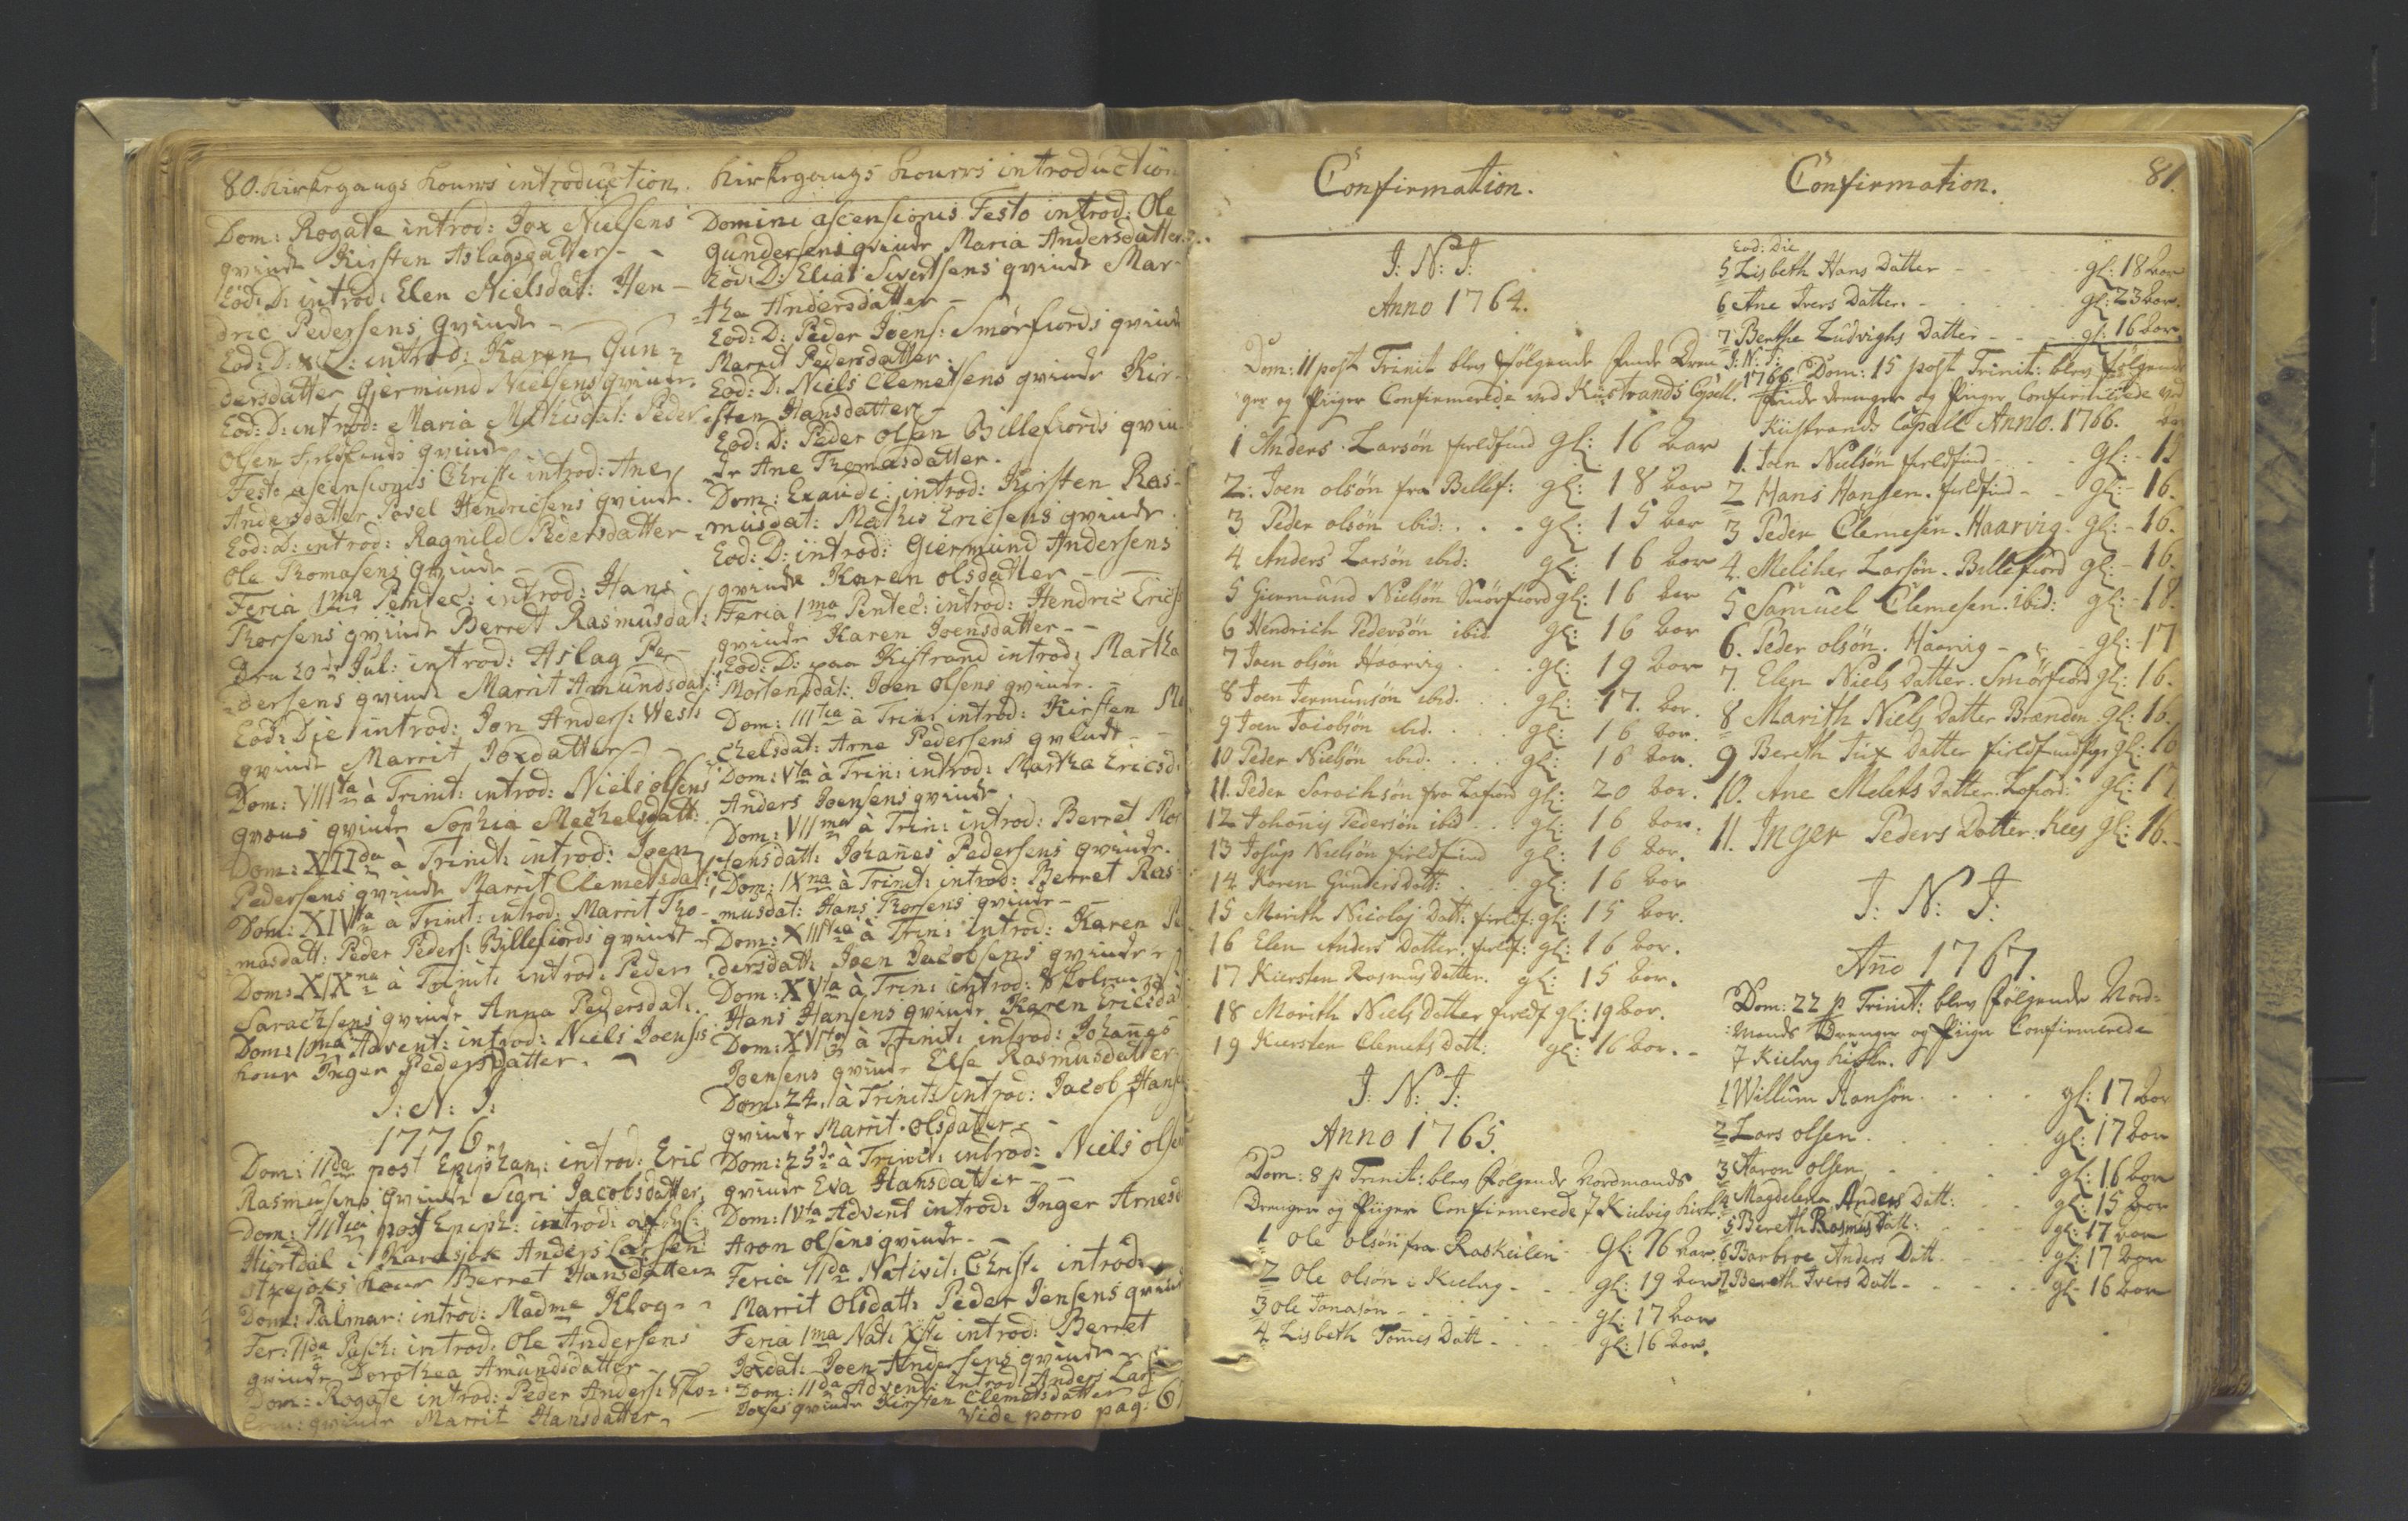 80. Kirkegangs Koners introduction.
Dom: Rogate introd: Jox Nielsens
qvinde Kirsten Aslagsdatter
Eod: D: introd: Elen Nielsdat: Hen-
dric Pedersens Qvinde
Eod: D: introd: Karen Gun-
dersdatter Gjermund Nielsens qvinde.
Eod: D: introd: Maria Mathisdat: Peder
Olsen qvinde
Festo ascensionis Christi introd: Ane
Andersdatter Povel Hendricsens qvinde.
Eod: D: introd: Ragnild Pedersdatter
Ole Thomasens qvinde
Feria 1ma Pentec: introd: Hans
Thorsens qvinde Berret Rasmusdat:
Den 20de Jul: introd: Aslag Pe-
dersens qvinde Marrit Amundsdat:
Eod: Die introd: Jon Anders: Wests
qvinde Marrit Joxdatter
Dom: VIIIta à Trinit: introd: Niels olsens
qvinde Sophia Mechelsdatt:
Dom: XIIda à Trinit: introd: Joen
Pedersens qvinde Marrit Clemetsdat:
Dom: XIVta à Trinit: introd: Marrit Tho-
masdatt: Peder Peders: Billefiords qvinde
Dom: XIXna à Trinit: introd: Peder
Sarachsens qvinde Anna Pedersdat:
Dom: 1ma Advent: introd: Niels Joenses
kone Inger Pedersdatter.
J: N: J:
1776.
Dom: IIda post Epiphan: introd: Eric
Rasmusens qvinde Sigri Jacobsdatter,
Dom: IIItia post Epiph: introd:
Hiortdal i Karasjok Anders Larsen
kone Berret Hansdatter
Dom: Palmar: introd: Madme Klog
Fer: IIda Pasch: introd: Ole Andersens
qvinde Dorothea Amundsdatter
Dom: Rogate introd: Peder Anders:
qvinde Marrit Hansdatter
Kirkegangs Koners introduction
Domini ascensionis Festo introd: Ole
Gundersens qvinde Maria Andersdatter
Eod: D: Elias Sivertsens qvinde Mar-
tha Andersdatter
Eod: D: Peder Joens: Smörfiords qvinde
Marrit Pedersdatter
Eod: D: Niels Clemetsens qvinde Kir-
sten Hansdatter
Eod: D: Peder Olsen Billefiords qvin-
de Ane Thomasdatter.
Dom: Exaudi: introd: Kirsten Ras-
musdat: Mathis Ericsens qvinde.
Eod: D: introd: Giermund Andersens
qvinde Karen olsdatter
Feria 1ma Pentec: introd: Hendric Erics
qvinde Karen Joensdatter
Eod: D: paa Kistrand introd: Martha
Mortensdat: Joen Olsens qvinde.
Dom: IIItia à Trin: introd: Kirsten
chelsdat: Arne Pedersens qvinde
Dom: Vta à Trin: introd: Martha Ericsd:
Anders Joensens qvinde.
Dom: VIIma à Trin: introd: Berret Mor
tensdatt: Johanes Pedersens qvinde.
Dom: IXna à Trinit: introd: Berret Ras
musdat: Hans Thorsens qvinde
Dom: XIIItia à Trin: introd: Karen Pe
dersdatt: Joen Jacobsens qvinde
Dom: XVta à Trin: introd:
Hans Hansens qvinde Karen Ericsdat
Dom: XVIta à Trinit: introd: Johanes
Joensens qvinde Else Rasmusdatter
Dom: 24. à Trinit: introd: Jacob Hans
qvinde Marrit Olsdatter
Dom: 25de à Trinit: introd: Niels olsen
qvinde Eva Hansdatter
Dom: IVta Advent introd: Inger Arnesd
Aron olsens qvinde
Feria IIda Nativit: Christi introd:
Marrit Olsdatt: Peder Jensens qvinde
Feria 1ma Nat: Xsti introd: Berret
Joxdat: Joen Andersens qvinde
Dom: IIda Advent: introd: Anders Lars
qvinde Kirsten Clemetsdatter
Vide porro pag:
Confirmation.
J: N: J:
Anno 1764.
Dom: 11 post Trinit blev følgende finde Dren
ger og Piiger Confirmerede ved Kiistrands Capell.
1 Anders Larsön fieldfind gl: 16 aar
2. Joen olsön fra Billef: gl: 18 aar
3 Peder olsön ibid: gl: 15 aar
4 Anders Larsön ibid: gl: 16 aar
5 Giermund Nielsön Smörfiord gl: 16 aar
6 Hendrich Pedersön ibid gl: 16 aar
7 Joen olsön Haarvig gl: 19 aar
8 Joen Jermunsön ibid. gl: 17. aar.
9 Joen Jacobsön ibid. gl: 16 aar.
10 Peder Nielsön ibid. gl: 16 aar.
11. Peder Sarachsön fra Lafiord gl: 20 aar.
12 Johanis Pedersön ibid gl: 16 aar.
13 Josup Nielsön fieldfind gl: 16 aar.
14 Karen Gunders datt: gl: 16 aar
15 Marith Nicolaj Datt: fieldf: gl: 15 aar.
16 Elen Anders Datter. fieldf: gl: 16 aar.
17 Kiersten Rasmus Datter. gl: 15 aar.
18 Marith Niels Datter fieldf gl: 19 aar.
19 Kiersten Clemets Datt: gl: 16 aar.
J: N: J:
Anno 1765.
Dom: 8 p Trinit: blev følgende Nordmands
Drenger og Piiger Confirmerede i Kielvig kirke
1 Ole olsön fra Gl: 16 aar.
2 Ole olsön i Kielvig gl: 19 aar
3 Ole Jonasön gl: 17 aar
4 Lisbeth Tomes Datt gl: 16 aar.
Confirmation.
81.
Eod: Die
5 Lisbeth Hans Datter gl: 18 aar
6 Ane Ivers Datter. gl: 23 aar.
7 Berthe Ludvighs Datter gl: 16 aar
J: N: J:
1766. Dom: 15 post Trinit: blev følgende
finde drenger og Piiger Confirmerede ved
Kiistrands Capell Anno. 1766.
1. Joen Nielsön fieldfind gl:
2 Hans Hansen. fieldfind gl: 16.
3 Peder Clemesen. Haarvig. gl: 16.
4. Melcher Larsön. Billefiord gl: 16.
5 Samuel Clemesen. ibid: gl: 18.
6. Peder olsön. Haarvig gl: 17
7. Elen Niels Datter. Smörfiord gl: 16.
8 Marith Niels Datter Brænden gl: 16.
9 Bereth Datter gl: 16
10. Ane Melchs Datter. Lafiord: gl: 17
11. Inger Peders Datter. gl: 16.
J: N: J:
Año 1767.
Dom: 22 p Trinit: blev følgende Nord-
mands Drenger og Piiger Confirmerede
i Kielvig kirke.
1 Willum Hansön gl: 17 aar
2 Lars olsen gl: 17 aar
3 Aaron olsen gl: 16 aar
4 Magdelena Anders Datt: gl: 15 aar
5 Bereth Rasmus Datt: gl: 17 aar
6 Barbroe Anders Datt gl: 17 aar
7 Bereth Ivers Datt gl: 16 aar